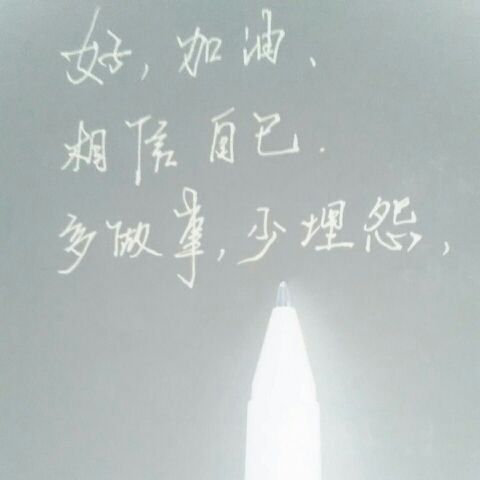 好，加油、
相信自己．
多做事，少埋怨，